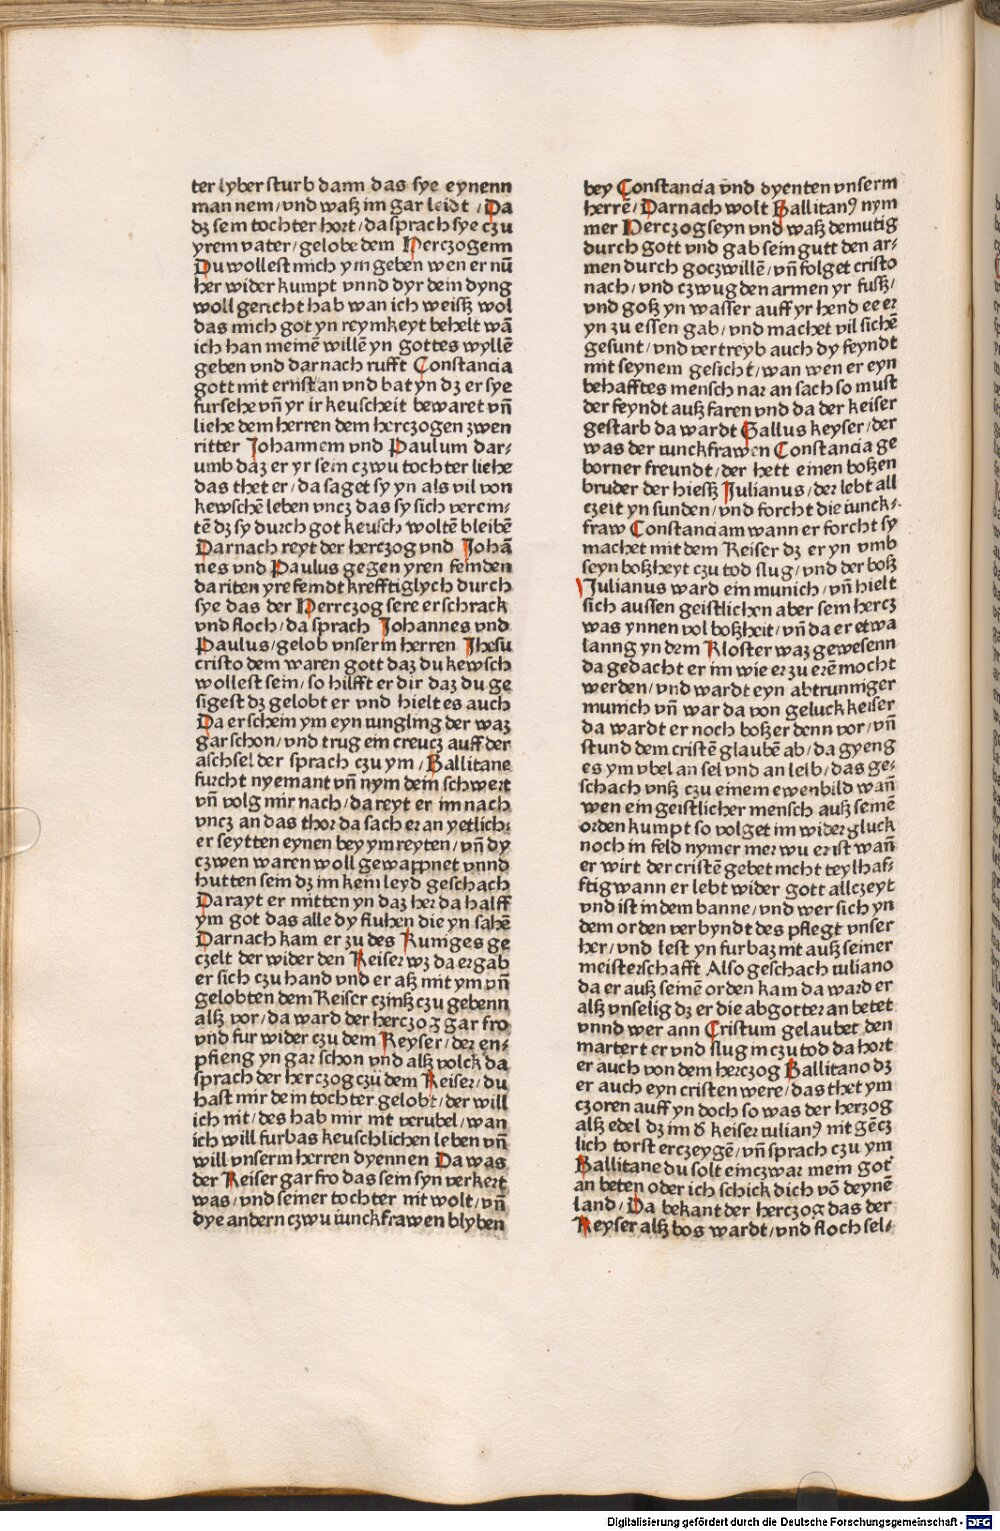 ter lyber sturb dann das sye eynenn
man nem/vnd waß im gar leidt / Da
dz sem tochter hort/da sprach sye czu
yrem vater/gelobe dem Herczogenn
Du wollest mich ym geben wen er nū
her wider kumpt vnnd dyr dein dyng
woll gericht hab wan ich weisz wol
das mich got yn reymkeyt behelt wā
ich han meinē willē yn gottes wyllē
geben vnd darnach rufft Constancia
gott mit ernst an vnd bat yn dz er sye
fursehe vñ yr ir keuscheit bewaret vñ
liehe dem herren dem herczogen zwen
ritter Johannem vnd Paulum dar-
umb daz er yr sein czwu tochter liehe
das thet er/da saget sy yn als vil von
kewschē leben vncz das sy sich verem-
tē dz sy durch got keusch woltē bleibē
Darnach reyt der herczog vnd Johā
nes vnd Paulus gegen yren feinden
da riten yre feindt krefftiglych durch
sye das der Herrczog sere erschrack
vnd floch/da sprach Johannes vnd
Paulus/gelob vnserm herren Jhesu
cristo dem waren gott daz du kewsch
wollest sein/so hilfft er dir daz du ge
sigest dz gelobt er vnd hielt es auch
Da erschein ym eyn iungling der waz
gar schon/vnd trug ein creucz auff der
aschsel der sprach czu ym/Gallitane
furcht nyemant vñ nym dein schwert
vñ volg mir nach/da reyt er im nach
vncz an das thor da sach er an yetlich:
er seytten eynen bey ym reyten/vñ dy
czwen waren woll gewappnet vnnd
hutten sein dz im kein leyd geschach
Da rayt er mitten yn daz her da halff
ym got das alle dy fluhen die yn sahē
Darnach kam er zu des Kuniges ge
czelt der wider den Keiser wz da ergab
er sich czu hand vnd er aß mit ym vñ
gelobten dem Keiser czinß czu gebenn
alß vor/da ward der herczog gar fro
vnd fur wider czu dem Keyser/der en-
pfieng yn gar schon vnd alß volck da
sprach der herczog czu dem Keiser/du
hast mir dein tochter gelobt/der will
ich nit/des hab mir nit verubel/wan
ich will furbas keuschlichen leben vñ
will vnserm herren dyennen Da was
der Keiser gar fro das sein syn verkert
was/vnd seiner tochter nit wolt/vñ
dye andern czwu iunckfrawen blyben
bey Constancia vnd dyenten vnserm
herrē/Darnach wolt Gallitanꝰ nym
mer Herczog seyn vnd waß demutig
durch gott vnd gab sein gutt den ar-
men durch goczwillē/vñ folget cristo
nach/vnd czwug den armen yr fusz/
vnd goß yn wasser auff yr hend ee er
yn zu essen gab/vnd machet vil sichē
gesunt/vnd vertreyb auch dy feyndt
mit seynem gesicht/wan wen er eyn
behafftes mensch nar an sach so must
der feyndt auß faren vnd da der keiser
gestarb da wardt Gallus keyser/der
was der iunckfrawen Constancia ge
borner freundt/der hett einen boßen
bruder der hiesz Julianus/der lebt all
czeit yn sunden/vnd forcht die iunck-
fraw Constanciam wann er forcht sy
machet mit dem Keiser dz er yn vmb
seyn boßheyt czu tod slug/vnd der boß
Julianus ward ein munich/vñ hielt
sich aussen geistlichen aber sein hercz
was ynnen vol boßheit/vñ da er etwa
lanng yn dem Kloster waz gewesenn
da gedacht er im wie er zu erē mocht
werden/vnd wardt eyn abtrunniger
munich vñ war da von geluck keiser
da wardt er noch boßer denn vor/vñ
stund dem cristē glaubē ab/da gyeng
es ym vbel an sel vnd an leib/das ge-
schach vnß czu einem ewenbild wañ
wen ein geistlicher mensch auß seinē
orden kumpt so volget im wider gluck
noch in feld nymer mer wu er ist wañ
er wirt der cristē gebet nicht teylhaf-
ftig wann er lebt wider gott allczeyt
vnd ist in dem banne/vnd wer sich yn
dem orden verbyndt des pflegt vnser
her/vnd lest yn furbaz nit auß seiner
meisterschafft Also geschach iuliano
da er auß seinē orden kam da ward er
alß vnselig dz er die abgotter an betet
vnnd wer ann Cristum gelaubet den
martert er vnd slug in czu tod da hort
er auch von dem herczog Gallitano dz
er auch eyn cristen were/das thet ym
czoren auff yn doch so was der herzog
alß edel dz im d̄ keiser iulianꝰ nit gēcz
lich torst erczeygē/vñ sprach czu ym
Gallitane du solt einczwar mein got
an beten oder ich schick dich vō deynē
land/Da bekant der herczog das der
Keyser alß bos wardt/vnd floch sel-
Digitalisierung gefördert durch die Deutsche Forschungsgemeinschaft - DFG